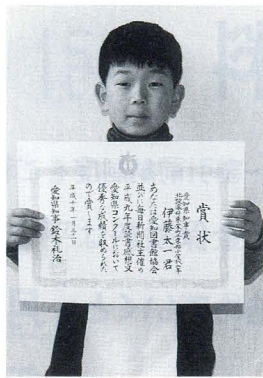 賞状
愛知県知事賞
伊藤太一君
あなたは愛知図書館協会
並びに毎日新聞社主催の
平成九年度読書感想文
愛知県コンクールにおいて
優秀な成績を収められた
ので賞します
平成十年一月三十一日
愛知県知事 鈴木礼治